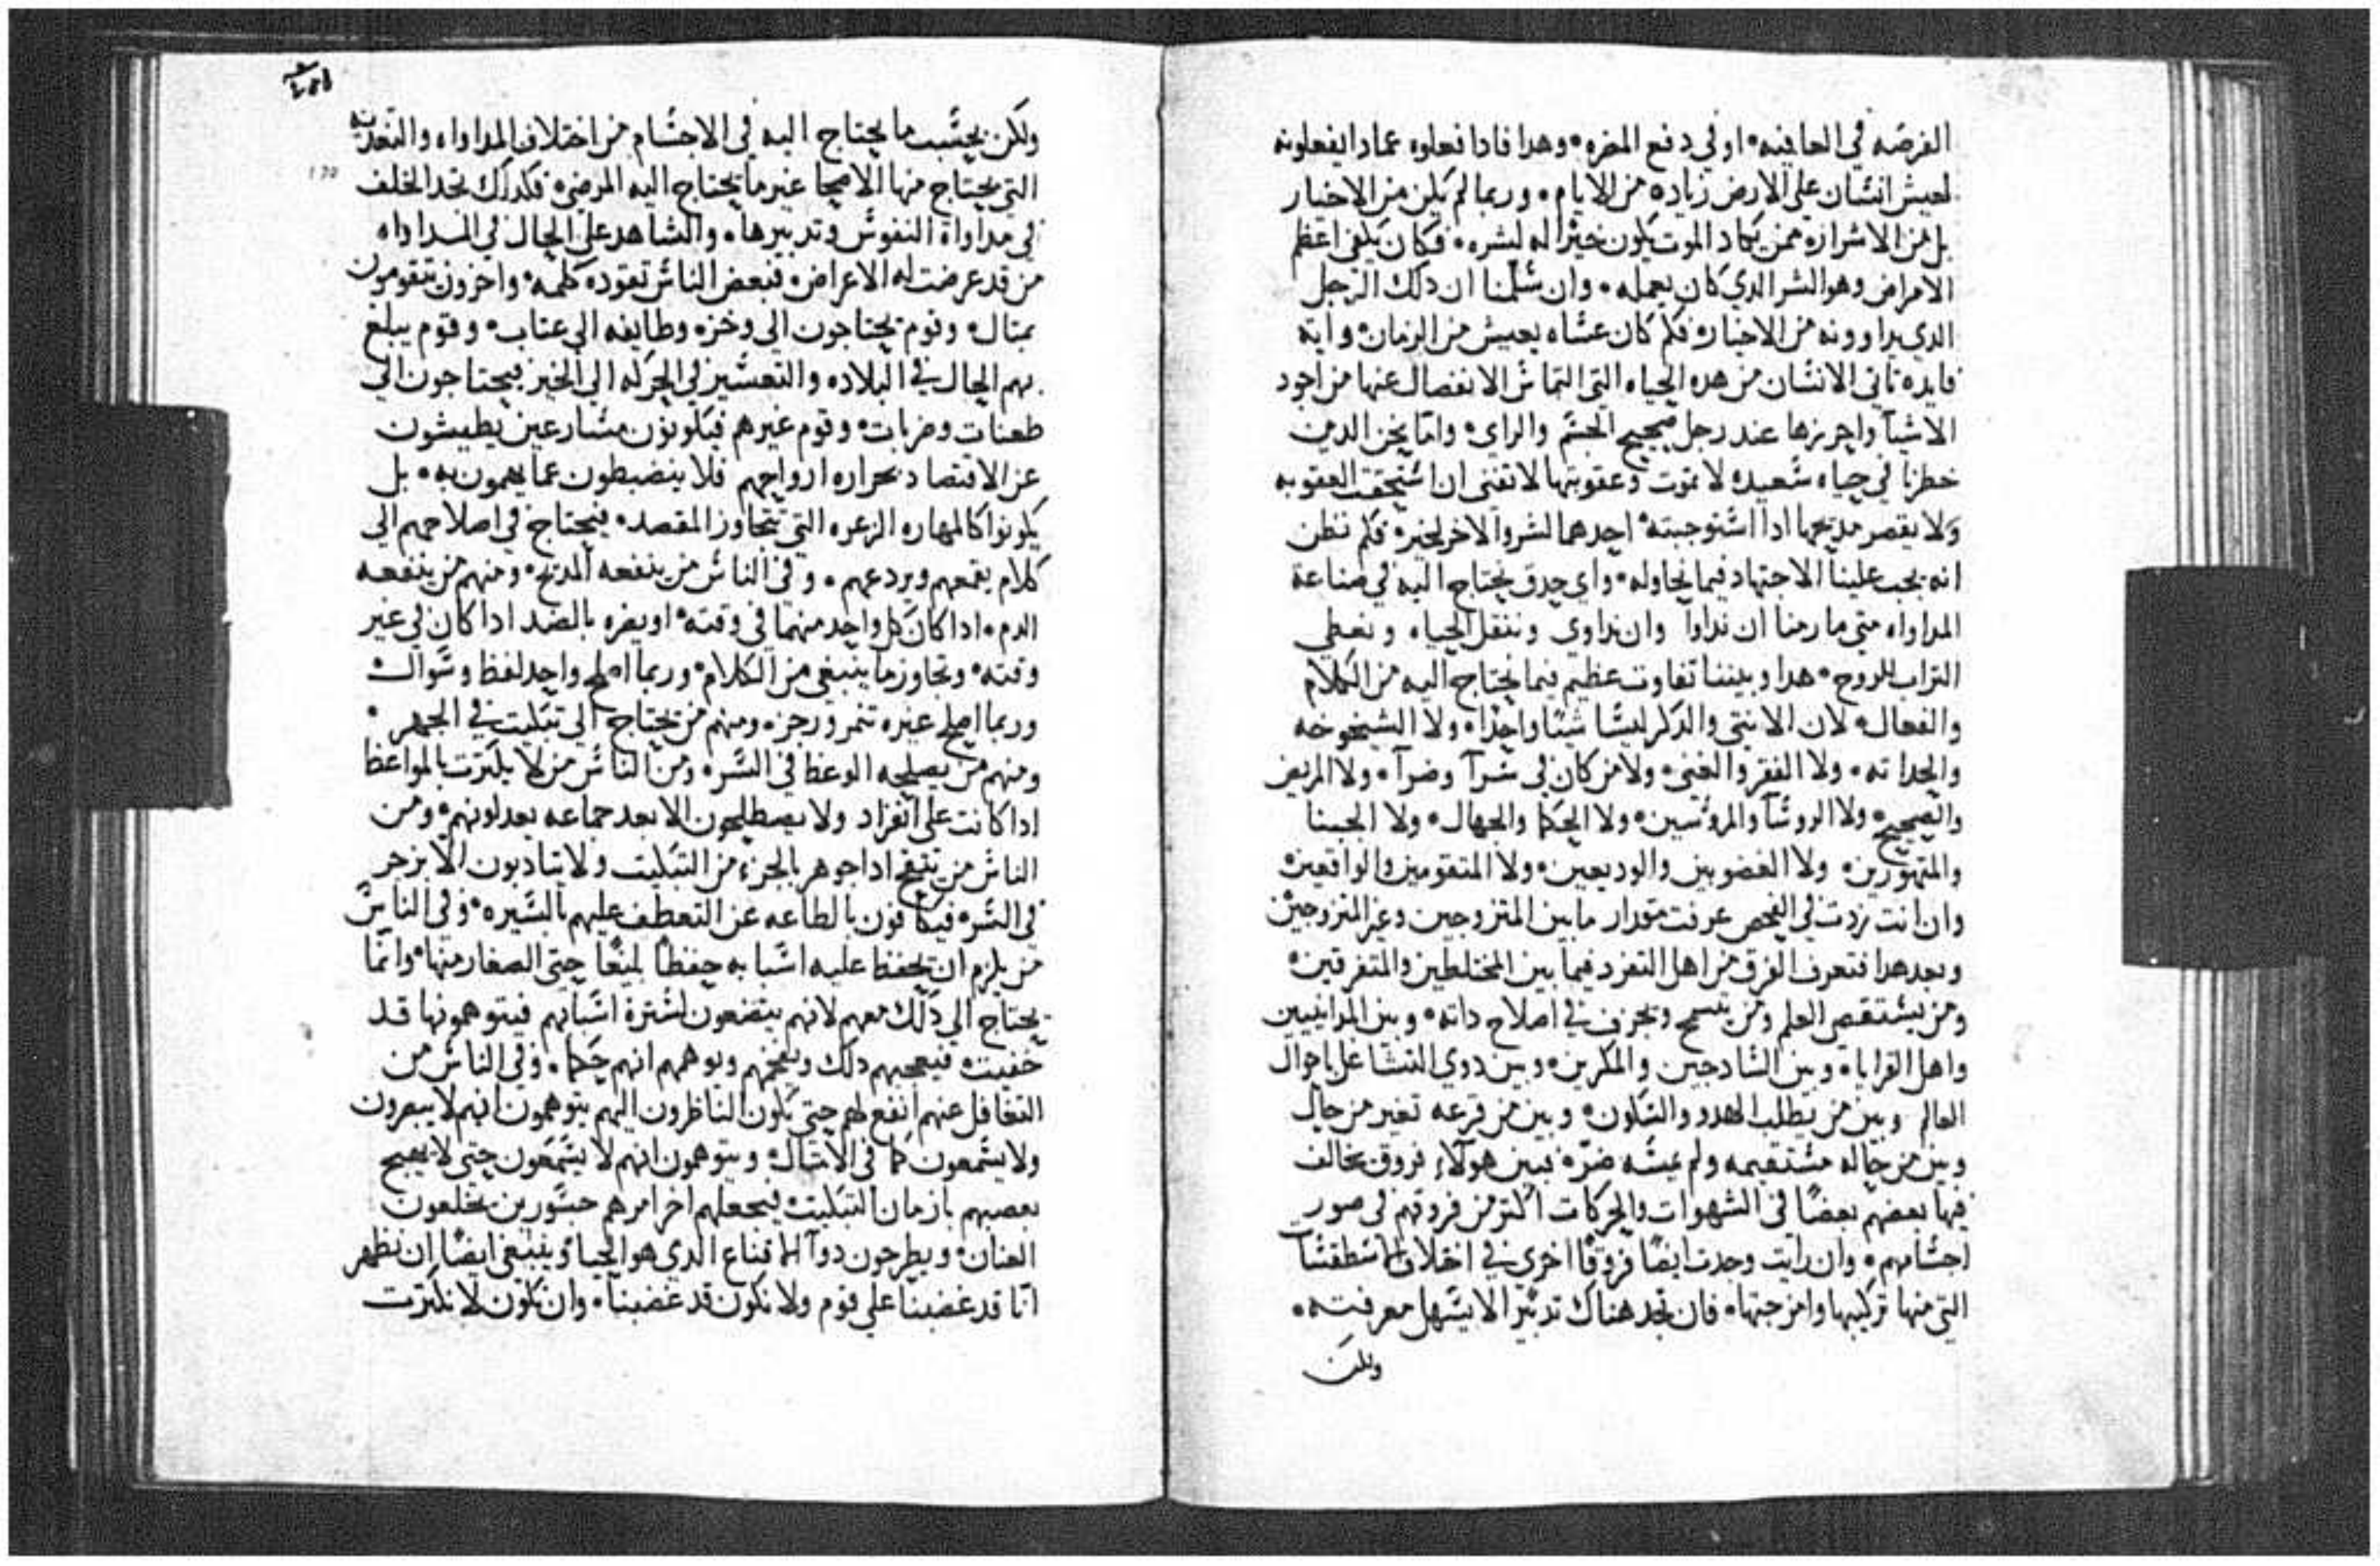 الفرصه في العافيه ٠ او في دفع المضره ٠ وهدا فادا فعلوه عمادا يفعلونه
لعيش انسان علي الارض زياده من الايام ٠ وربما لم يكن من الاخيار
بل من الاشرار ٠ ممن يكاد الموت يكون خيرًا له لشره ٠ فكان يكفي اعظم
الامراض وهو الشر الدي كان يعمله ٠ وان سلمنا ان دلك الرجل
الدي يداوونه من الاخيار ٠ فكم كان عساه يعيش من الزمان ٠ وايه
فايده تاتي الانسان من هده الحياه التي التماس الانفصال عنها من اجود
الاشيآ واحرزها عند رجل صحيح الجسم والراي ٠ وامّا نحن الدين
خطرنا في حياه سعيده لا تموت وعقوبتها لا تفني ان استحقت العقوبه
ولا يقصر مديحها ادا استوجبته ٠ احدهما لشر والاخر لخير ٠ فكم نظن
انه يجب علينا الاجتهاد فيما نحاوله ٠ واي حدق نحتاج اليه في صناعة
المداواه متي ما رمنا ان نداوآ وان نداوي وننقل الحياه ونعطي
التراب للروح ٠ هدا وبيننا تفاوت عظيم فيما نحتاج اليه من الكلام
والفعال ٠ لان الانتي والدكر ليسا شيئًا واحدًا ٠ ولا الشيخوخه
والحداثه ٠ ولا الفقر والغني ٠ ولا من كان في سرآ وضرآ ٠ ولا المريض
والصحيح ٠ ولا الروسآ والمروسين ٠ ولا الحكما والجهال ٠ ولا الجبنا
والمتهورين ٠ ولا الغضوبين والوديعين ٠ ولا المتقومين والواقعين ٠
وان انت زدت في الفحص عرفت مقدار ما بين المتزوجين وغير المتزوجين
وبعد هدا فتعرف الفرق من اهل التفرد فيما بين المختلطين والمتفرقين ٠
ومن يستقصي العلم ومن يتسمح ويجزف في اصلاح داته ٠ وبين المداينيين
واهل القرايا ٠ وبين السادجين والمكرين ٠ وبين دوي التشاغل باحوال
العالم وبين من يطلب الهدو والسكون ٠ وبين من قرعه تغير من حال
وبين من حاله مستقيمه ولم يمسه ضرّه فبين هولآء فروق يخالف
فيها بعضهم بعضًا في الشهوات والحركات اكتر من فروقهم في صور
اجسامهم ٠ وان رايت وجدت ايضًا فروقًا اخري في اختلاف الاسطقسات
التي منها تركيبها وامزجتها ٠ فان تجد هناك تدبيرًا لا يسهل معرفته ٠
ولكن
ولكن بحسب ما يحتاج اليه في الاجسام من اختلاف المداواه والتغديه
التي يحتاج منها الاصحا غير ما يحتاج اليه المرضي ٠ فكدلك نجد الخلف
في مداواة النفوس وتدبيرها ٠ والشاهد علي الحال في المداواه
من قد عرضت له الاعراض ٠ فبعض الناس تقوده كلمه ٠ واخرون تتقومون
بمتال ٠ وقوم يحتاجون الي وخزه وطايفه الي عتاب ٠ وقوم يبلغ
بهم الحال في البلاده والتعسير في الحركه الي الخير فيحتاجون الي
طعنات وضربات ٠ وقوم غيرهم فيكونون مسارعين يطيشون
عن الاقتصاد بحراره ارواحهم فلا ينضبطون عما يهمون به ٠ بل
يكونوا كالمهاره الزعره التي تتجاوز المقصد ٠ فيحتاج في اصلاحهم الي
كلام يقمعهم ويردعهم ٠ وفي الناس من ينفعه المديح ٠ ومنهم من ينفعه
الدم ٠ ادا كان كل واحد منهما في وقته ٠ او يضره بالضد ادا كان في غير
وقته ٠ وتجاوز ما ينبغي من الكلام ٠ وربما اصلح واحد لفظ وسوال ٠
وربما اصلح غيره تنمر ورجز ٠ ومنهم من يحتاج الي تبكيت في الجهر ٠
ومنهم من يصلحه الوعظ في السر ٠ ومن الناس من لا يكترت بالمواعظ
ادا كانت علي انفراد ولا يصطلحون الا بعد جماعه يعدلونهم ٠ ومن
الناس من يتقح ادا جوهر بالجزء من التبكيت ولا يتادبون الا بزجر
في السر ٠ فيكافون بالطاعه عن التعطف عليهم باليسيره ٠ وفي الناس
من يلزم ان يحفظ عليه اسبابه حفظًا بليغًا حتي الصغار منها ٠ وانما
يحتاج الي دلك معهم لانهم يتضعون لسترة اسبابهم فيتوهمونها قد
خفيت ٠ فيعجبهم دلك وينفخهم ويوهمهم انهم حكما ٠ وفي الناس من
التغافل عنهم انفع لهم حتي يكون الناظرون اليهم يتوهمون انهم لا يبصرون
ولا يسمعون كما في الامتال ٠ ويتوهمون انهم لا يسمعون حتي لا يصيح
بعصيهم بازمان التبكيت ٠ فيجعلهم اخر امرهم جسورين يخلعون
العنان ٠ ويطرحون دوآ الاقناع الدي هو الحيا ٠ وينبغي ايضًا ان نظهر
انّا قد غضبنا علي قوم ولا نكون قد غضبنا ٠ وان نكون لا نكترت